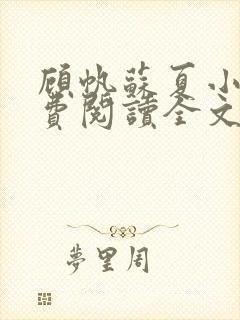 顧帆蘇夏小
費閱讀全文
夢里周